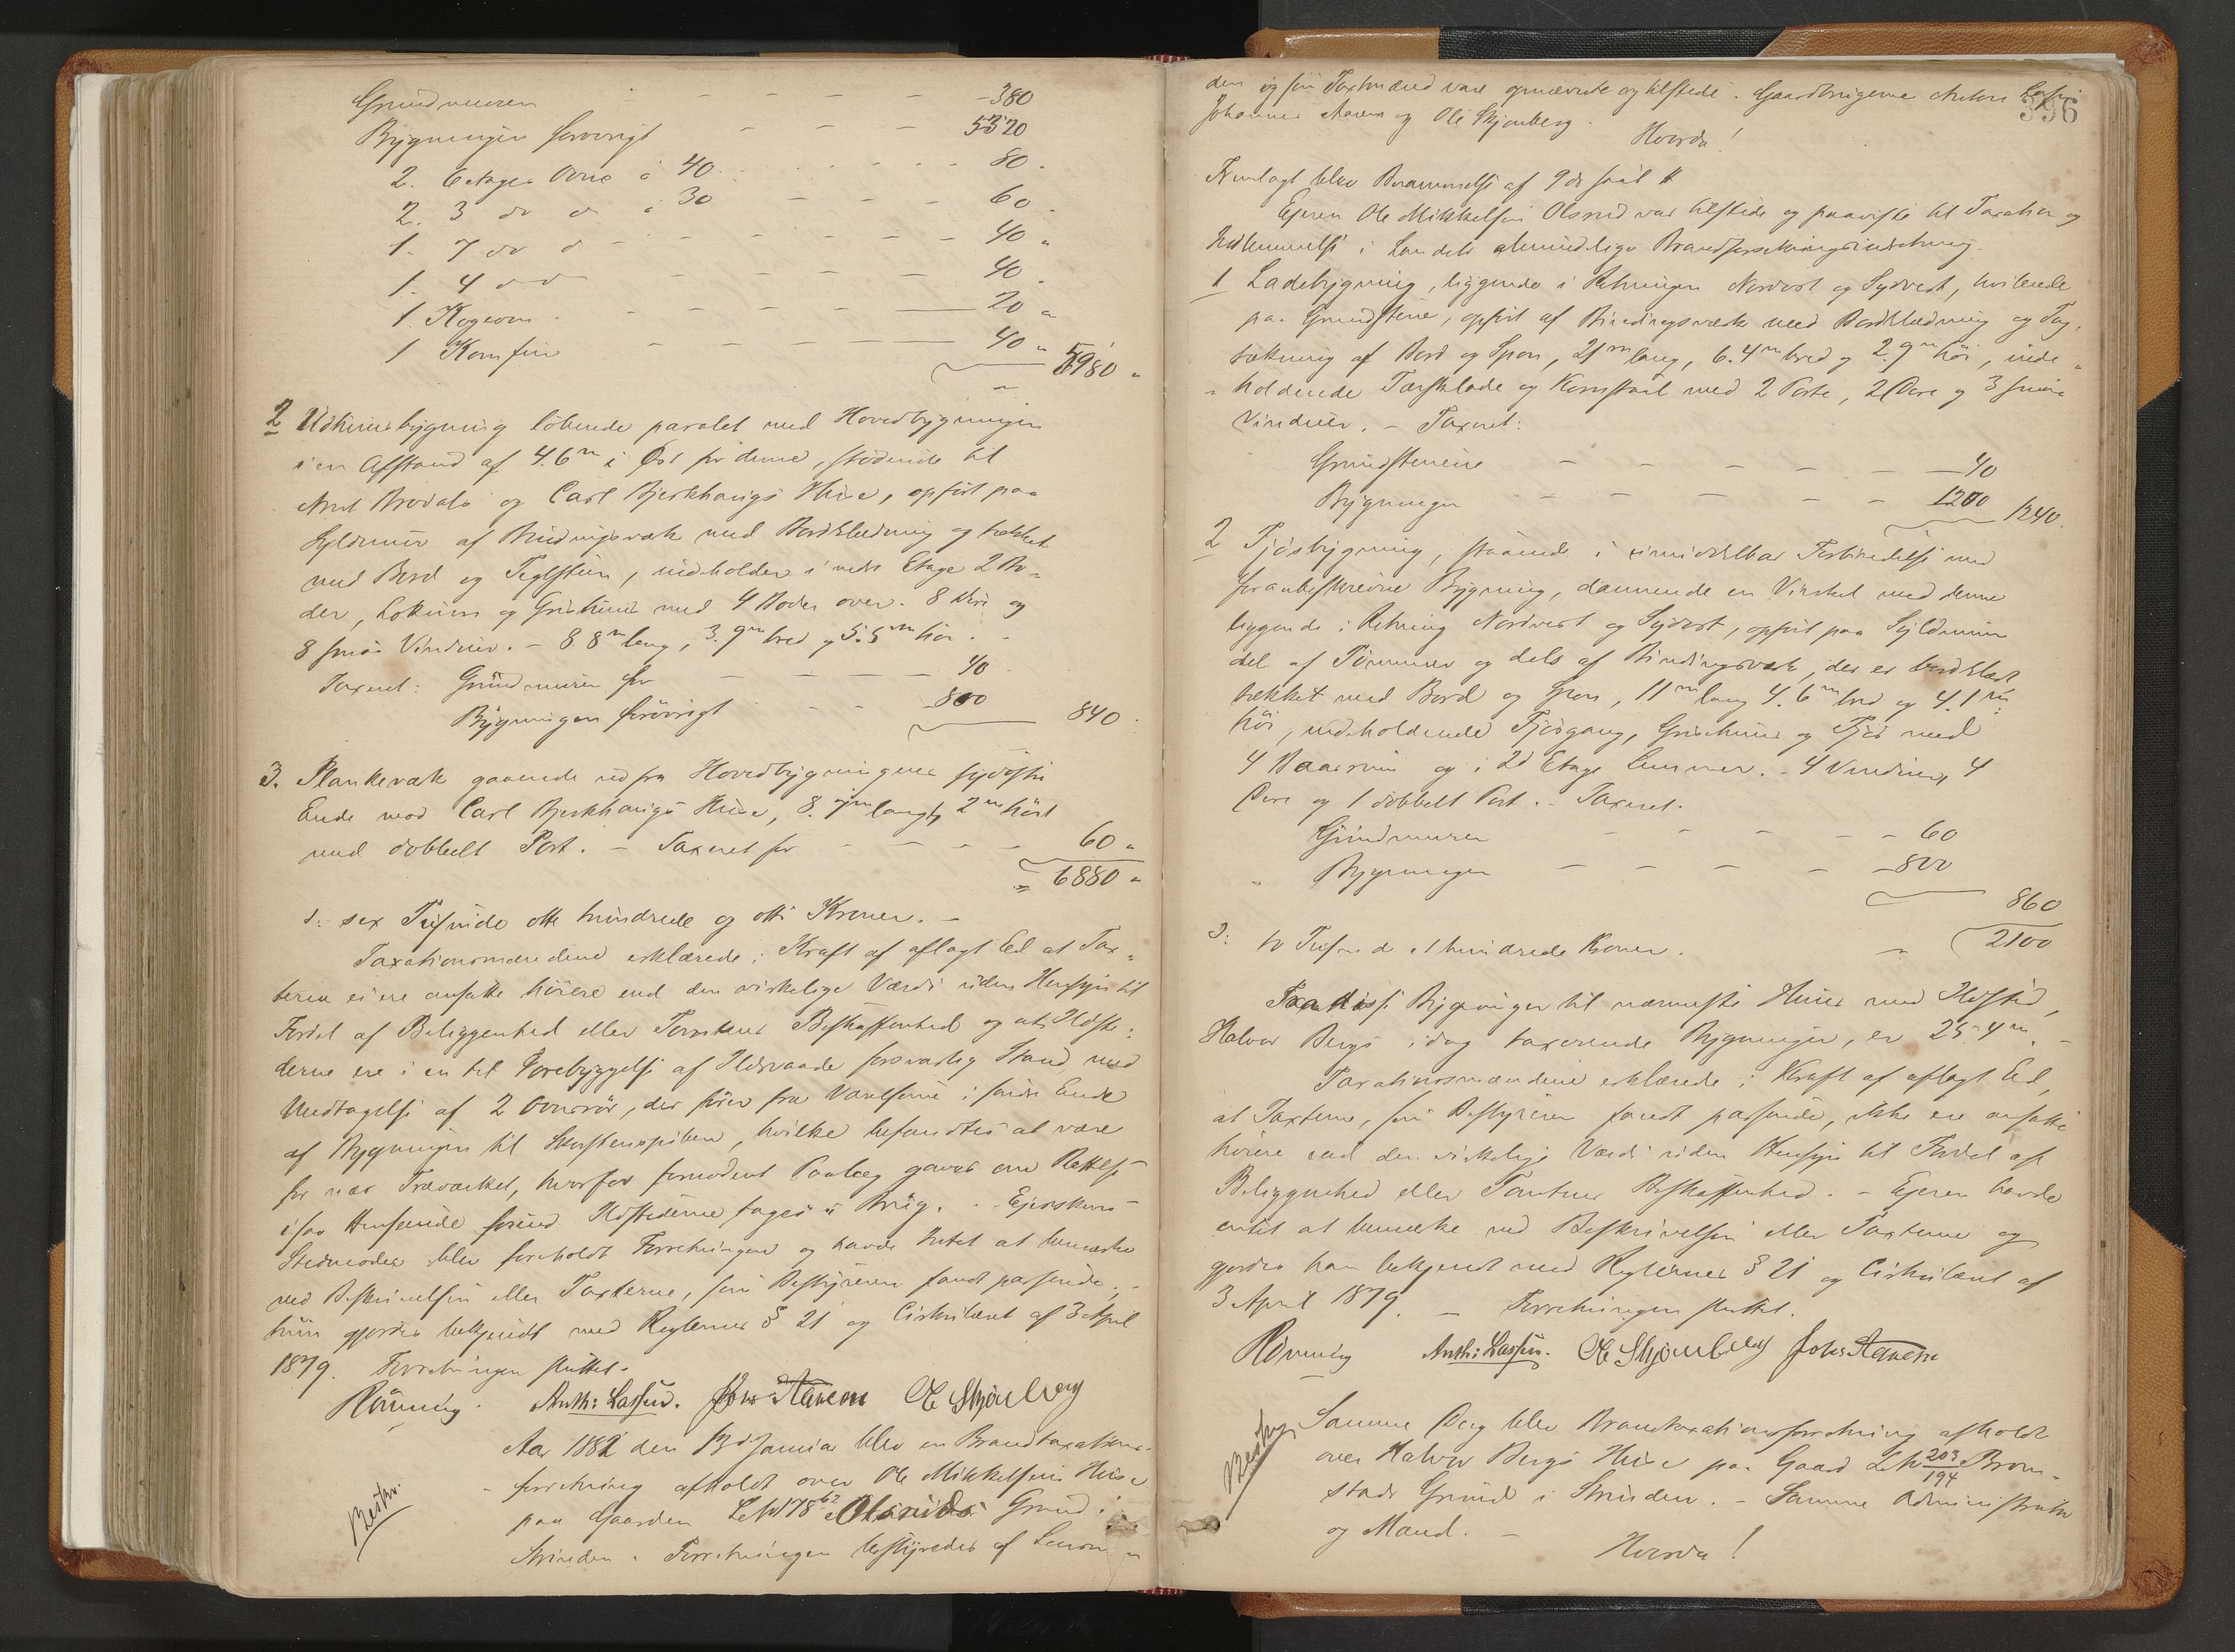 Grundmuren - - - - 380
Bygningen forøvrigt - - - 5320
2. Etages Ovne à 40 - - - 80 -
2. 3 do do à 30 - - - 60 -
1. 7 do d - - - - 40 "
1. 4 do d - - - - 40 -
1. Kogeovn - - - - 20 "
1 Komfur - - - - 40 " 5980 "
2 Udhuusbygning løbende paralel med Hovedbygningen
i en Afstand af 4.6 m i Øst for denne, stødende til
og Carl Bjerkhaugs Huse, opført paa
Syldmuur af Bindingsværk med Bordklædning og tækket
med Bord og Teglsteen, indholder i nedre Etage 2 Bo-
der, Lokum og Grisehuus med 4 Boder over. 8 Døre og
8 smaa Vinduer. - 8.8 m lang, 3.9 m bred og 5.5 m høi. -
Taxeret: Grundmuren for - - - 40 -
Bygningen forøvrigt - - - 800 840 -
3. Plankeværk gaaende ud fra Hovedbygningens sydøstre
Ende mod Carl Bjerkhaugs Huse, 8. m langt, 2 m høit
med dobbelt Port. - Taxeret for - - - 60 "
6880 "
o: sex Tusinde otte hundrede og otti Kroner. -
Taxationsmændene erklærede i Kraft af aflagt Ed at Tax-
terne ei ere ansatte høiere end den virkelige Værdi uden Hensyn til
Fordel af Beliggenhed eller Tomtens Beskaffenhed og at Ildste-
derne ere i en til Forebyggelse af Ildsvaade forsvarlig Stand, med
Undtagelse af 2 Ovnsrør, der fører fra Værelserne i søndre Ende
af Bygningen til Skorstenspiben, hvilke befandtes at være
for nær Træværket, hvorfor fornødent Paalæg gaves om Rettelse
i saa Henseende forind Ildstederne tages i Brug. - Eierskens
Stedmoder blev foreholdt Forretningen og havde Intet at bemærke
ved Beskrivelsen eller Taxterne, som Bestyreren fandt passende. -
hun gjordes bekjendt med Reglernes § 21 og Cirkulæret af 3 April
1879. Forretningen sluttet.
Rönning. Anth: Lassen. Johs Aavem Ole Skjønberg
Aar 1882 den 13de Januar blev en Brandtaxations-
forretning afholdt over Ole Mikkelsens Huse
paa Gaarden L No 178 62 Olsruds Grund i
Strinden. Forretningen bestyredes af Lens-
Beskr.
396
den og som Taxtmænd vare opnævnte og tilstede. Gaardbrugerne Anton Lassen
Johannes Aavem og Ole Skjønberg.
Hvorda!
Fremlagt blev Berammelse af 9de saal #
Ejeren Ole Mikkelsen Olsrud var tilstede og paaviste til Taxation og
Indlemmelse i Landets almindelige Brandforsikringsindretning.
1 Ladebygning, liggende i Retningen Nordost og Sydvest, hvilende
paa Grundstene, opført af Bindingsværk med Bordklædning og Tag-
tækning af Bord og Spon, 21 m lang, 6.4 m bred og 2.9 m høi, inde-
holdende Tærsklade og Kornstaal med 2 Porte, 2 Døre og 3 smaa
Vinduer. - Taxeret:
Grundstenene - - - - - 40
Bygningen - - - - - 1200 1240.
2 Fjøsbygning, staaende i umiddelbar Forbindelse med
foranbeskrevne Bygning, dannende en Vinkel med denne
liggende i Retning Nordvest og Sydost, opført paa Syldmuur
del af Tømmer og dels af Bindingsværk, der er bordklædt
tækket med Bord og Spon, 11 m lang 4.6 m bred og 4.1 m
høi, indeholdende Fjøsgang, Grisehuus og Fjøs med
4 Baasrum og i 2d Etage Lemmer. - 4 Vinduer, 4
Døre og 1 dobbelt Port. - Taxeret.
Grundmuren - - - - 60
Bygningen - - - - 800
860
o: to Tusinde et hundrede Kroner. " 2100
Fra disse Bygninger til nærmeste Huus med Ildsted,
Halvor Bergs idag taxerende Bygninger, er 25.4 m. -
Taxationsmændene erklærede i Kraft af aflagt Ed,
at Taxterne, som Bestyreren fandt passende, ikke ere ansatte
høiere end den virkelige Værdi uden Hensyn til Fordel af
Beliggenhed eller Tomtens Beskaffenhed. - Ejeren havde
intet at bemærke ved Beskrivelsen eller Taxterne og
gjordes han bekjendt med Reglernes § 21 og Cirkulæret af
3 April 1879. - Forretningen sluttet.
Rönning Anth: Lassen. Ole Skjønberg Johs Aavem
Beskr.
Samme Dag blev Brandtaxationsforretning afholdt
over Halvor Bergs Huse paa Gaard L No 203/194 Brom-
stads Grund i Strinden. - Samme Administrator
og Mænd. -
Hvorda!